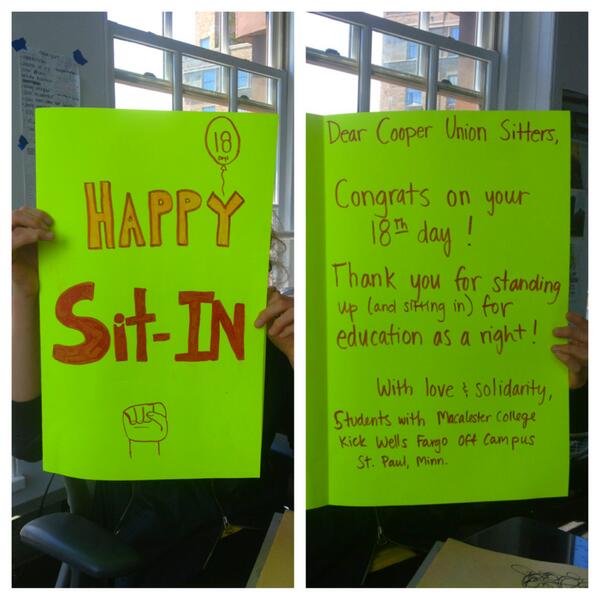 18
Days
HAPPY
Sit-IN
Dear Cooper Union Sitters,
Congrats on your
18th day!
Thank you for standing
up (and sitting in) for
education as a right!
With love & solidarity,
Students with Macalester College
Kick Wells Fargo Off Campus
St. Paul, Minn.